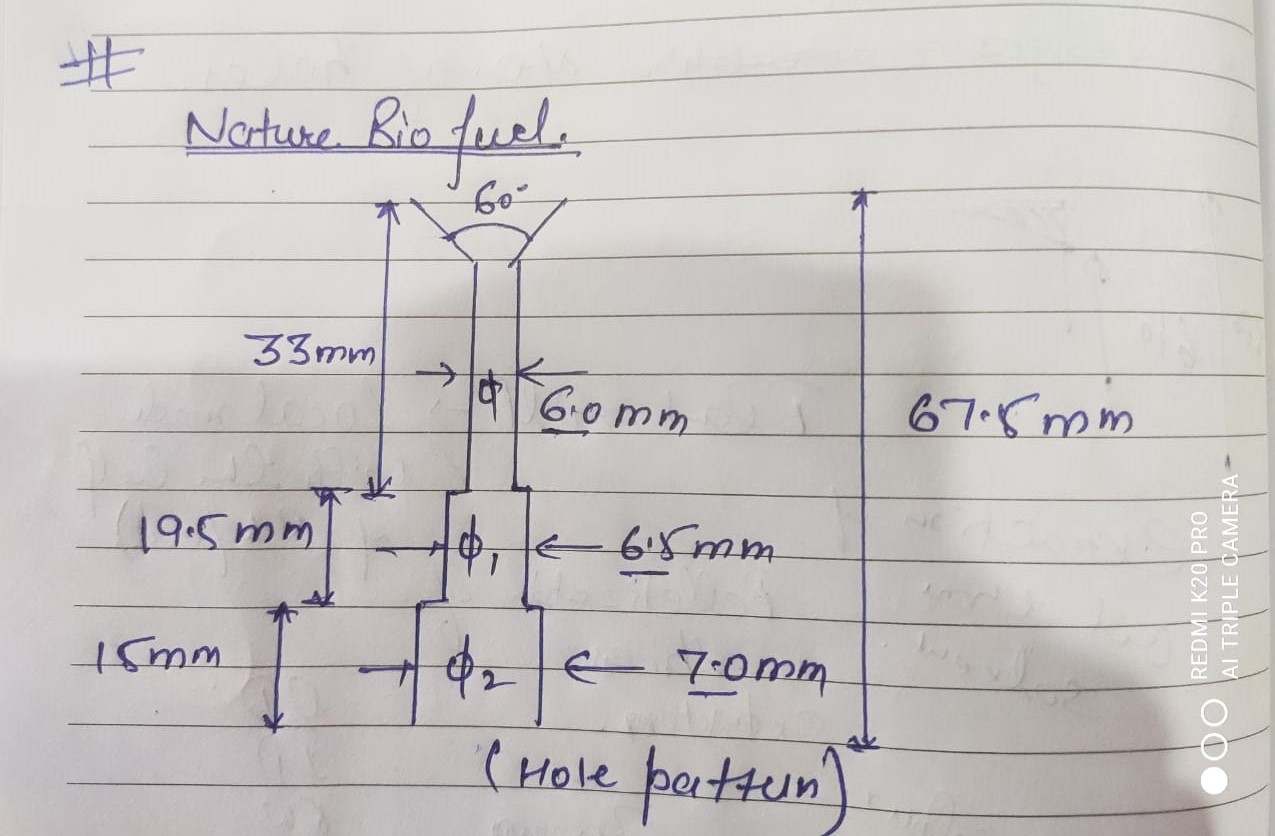 #
Nature Bio fuel.
60°
33mm
ϕ 6.0 mm
67.5 mm
19.5 mm
ϕ1 6.5 mm
15mm
ϕ2 7.0 mm
(Hole pattern)
REDMI K20 PRO
AI TRIPLE CAMERA